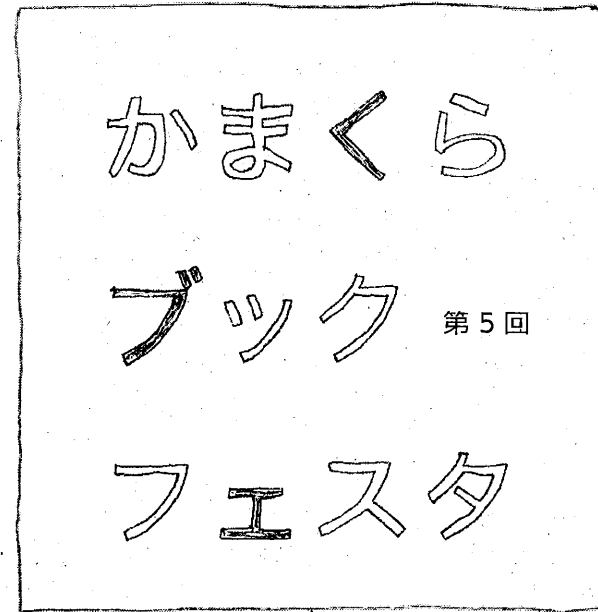 かまくら
ブック 第5回
フェスタ